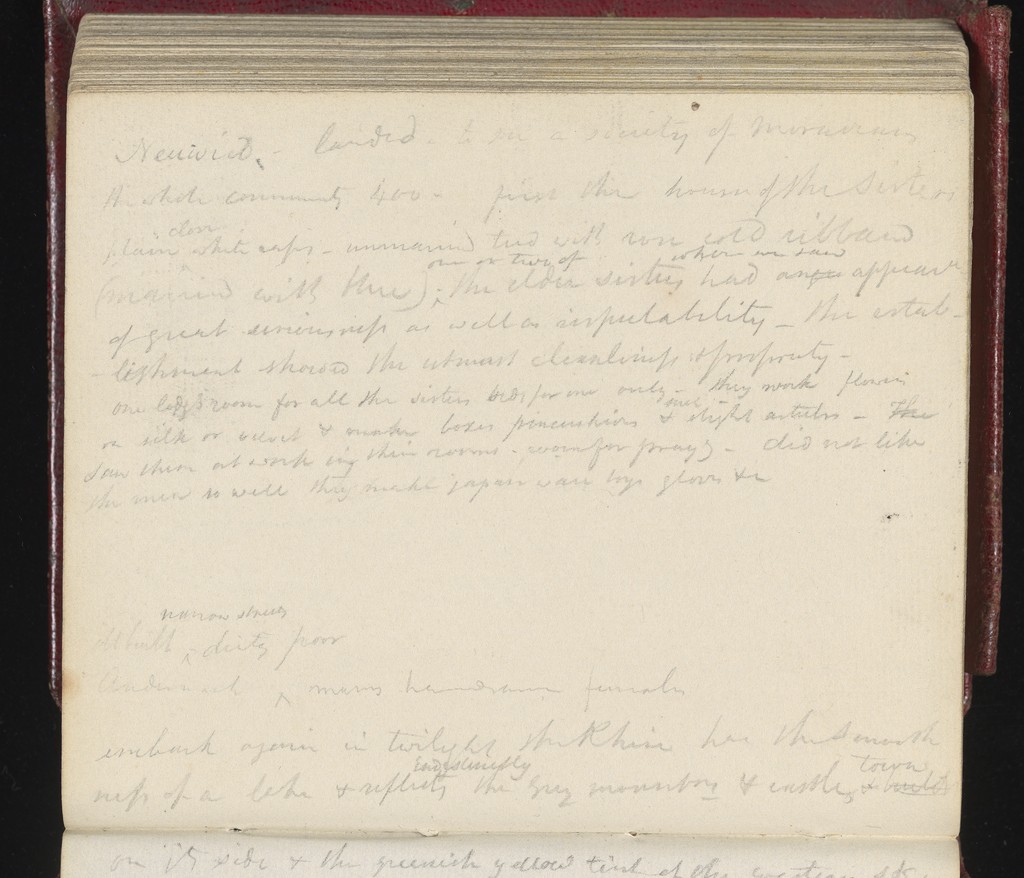 Neuwied. - landed - to see a society of Moravians
the whole community 400 - first the house of the Sisters
close
plain white caps - unmarried tied with rose cold ribband
one or two of whom we saw
(married with blue); the elder sisters had an appearance
of great seriousness as well as respectability - The estab-
-lishment showed the utmost cleanliness & propriety -
one large room for all the sisters beds for one only - they work flowers
on silk or velvet & make boxes pincushions & slight articles - The
saw them at work in their rooms - room for pray - did not like
the men so well they make japan ware toys gloves &c
narrow streets
ill built dirty poor
Andernach many handsome females
embark again in twilight the Rhine has the smooth
indistinctly town
ness of a lake & reflects the grey mountains & castle, &
on its side & the greenish yellow tint of the western sky